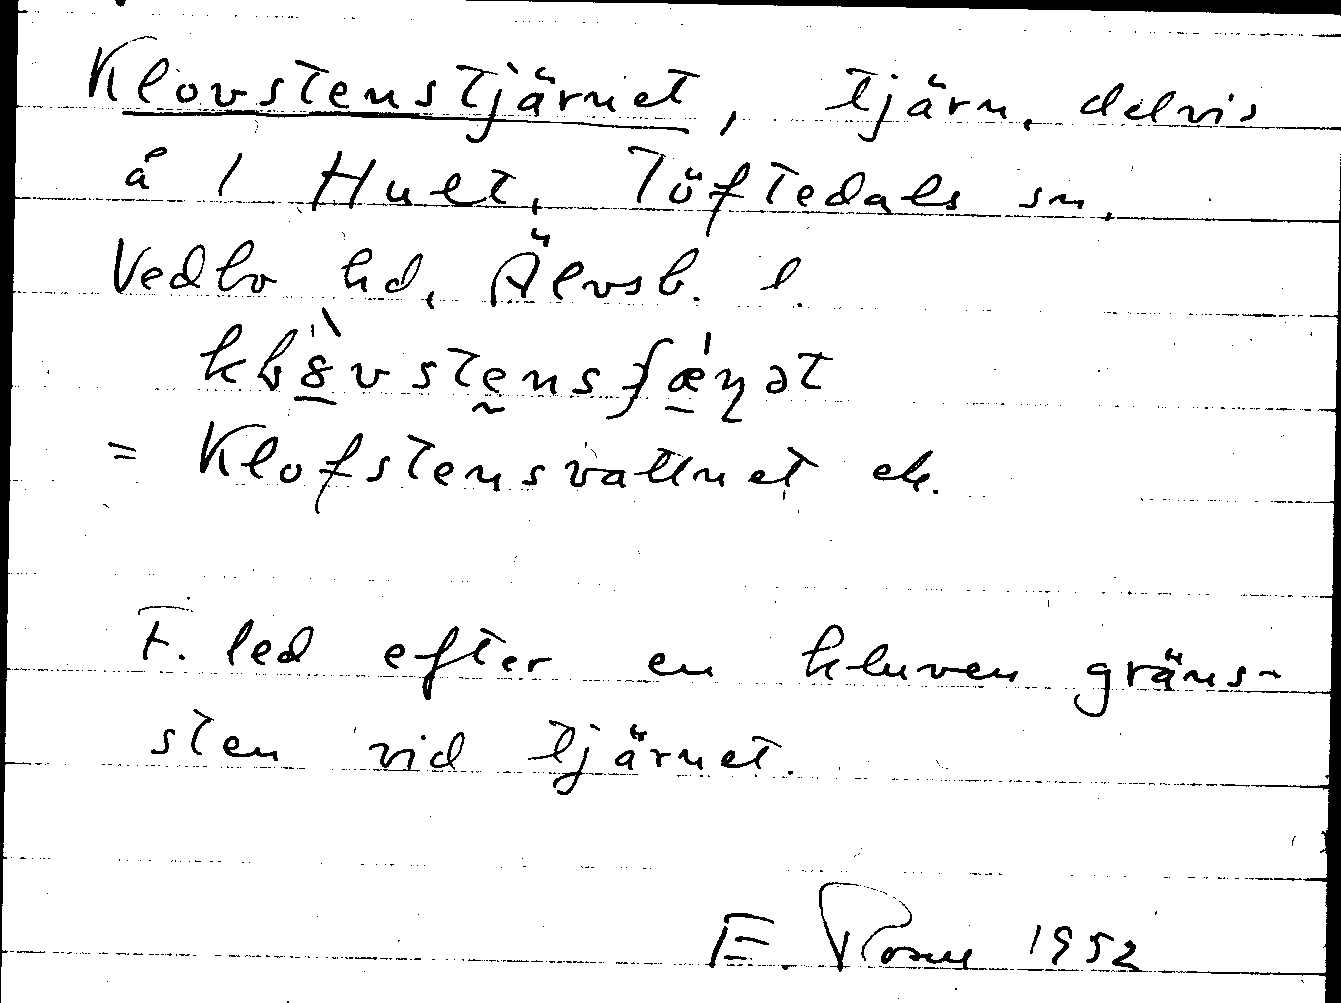 Klovstenstjärnet, tjärn, delvis
å 1 Hult, Töftedals sn,
Vedbo hd, Älvsb. l.
= Klofstensvattnet ek.
F. led efter en kluven gräns-
sten vid tjärnet.
E. 1952